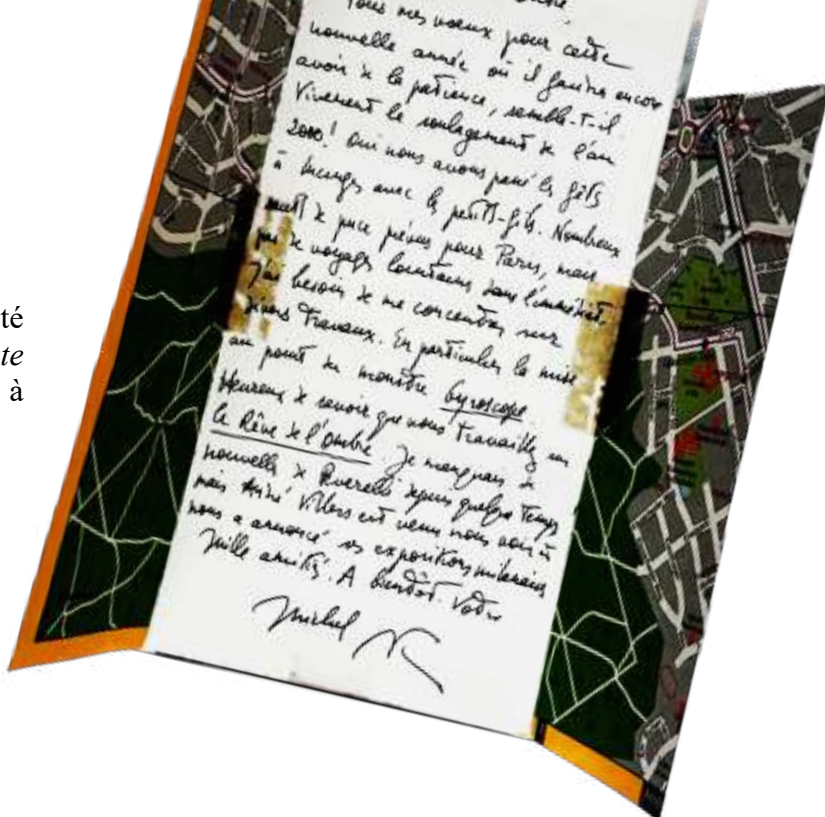 té
te
à
Tous mes voeux pour cette
nouvelle année où il faudra encore
avoir de la patience, semble-t-il
Vivement le soulagement de l'an
2000! Oui nous avons passé les fêtes
à Lucinges avec les petits-fils. Nombreux
sauts de puce prévus pour Paris, mais
pas de voyages lointains dans l'immédiat.
J'ai besoin de me concentrer sur
divers travaux. En particulier la mise
au point du monstre Gyroscope.
Heureux de savoir que vous travaillez
le Rêve de l'Ombre. Je manquais de
nouvelles de depuis quelque temps
mais André Villers est venu nous voir
nous a annoncé ses expositions
Mille amitiés. A bientôt. Votre
Michel